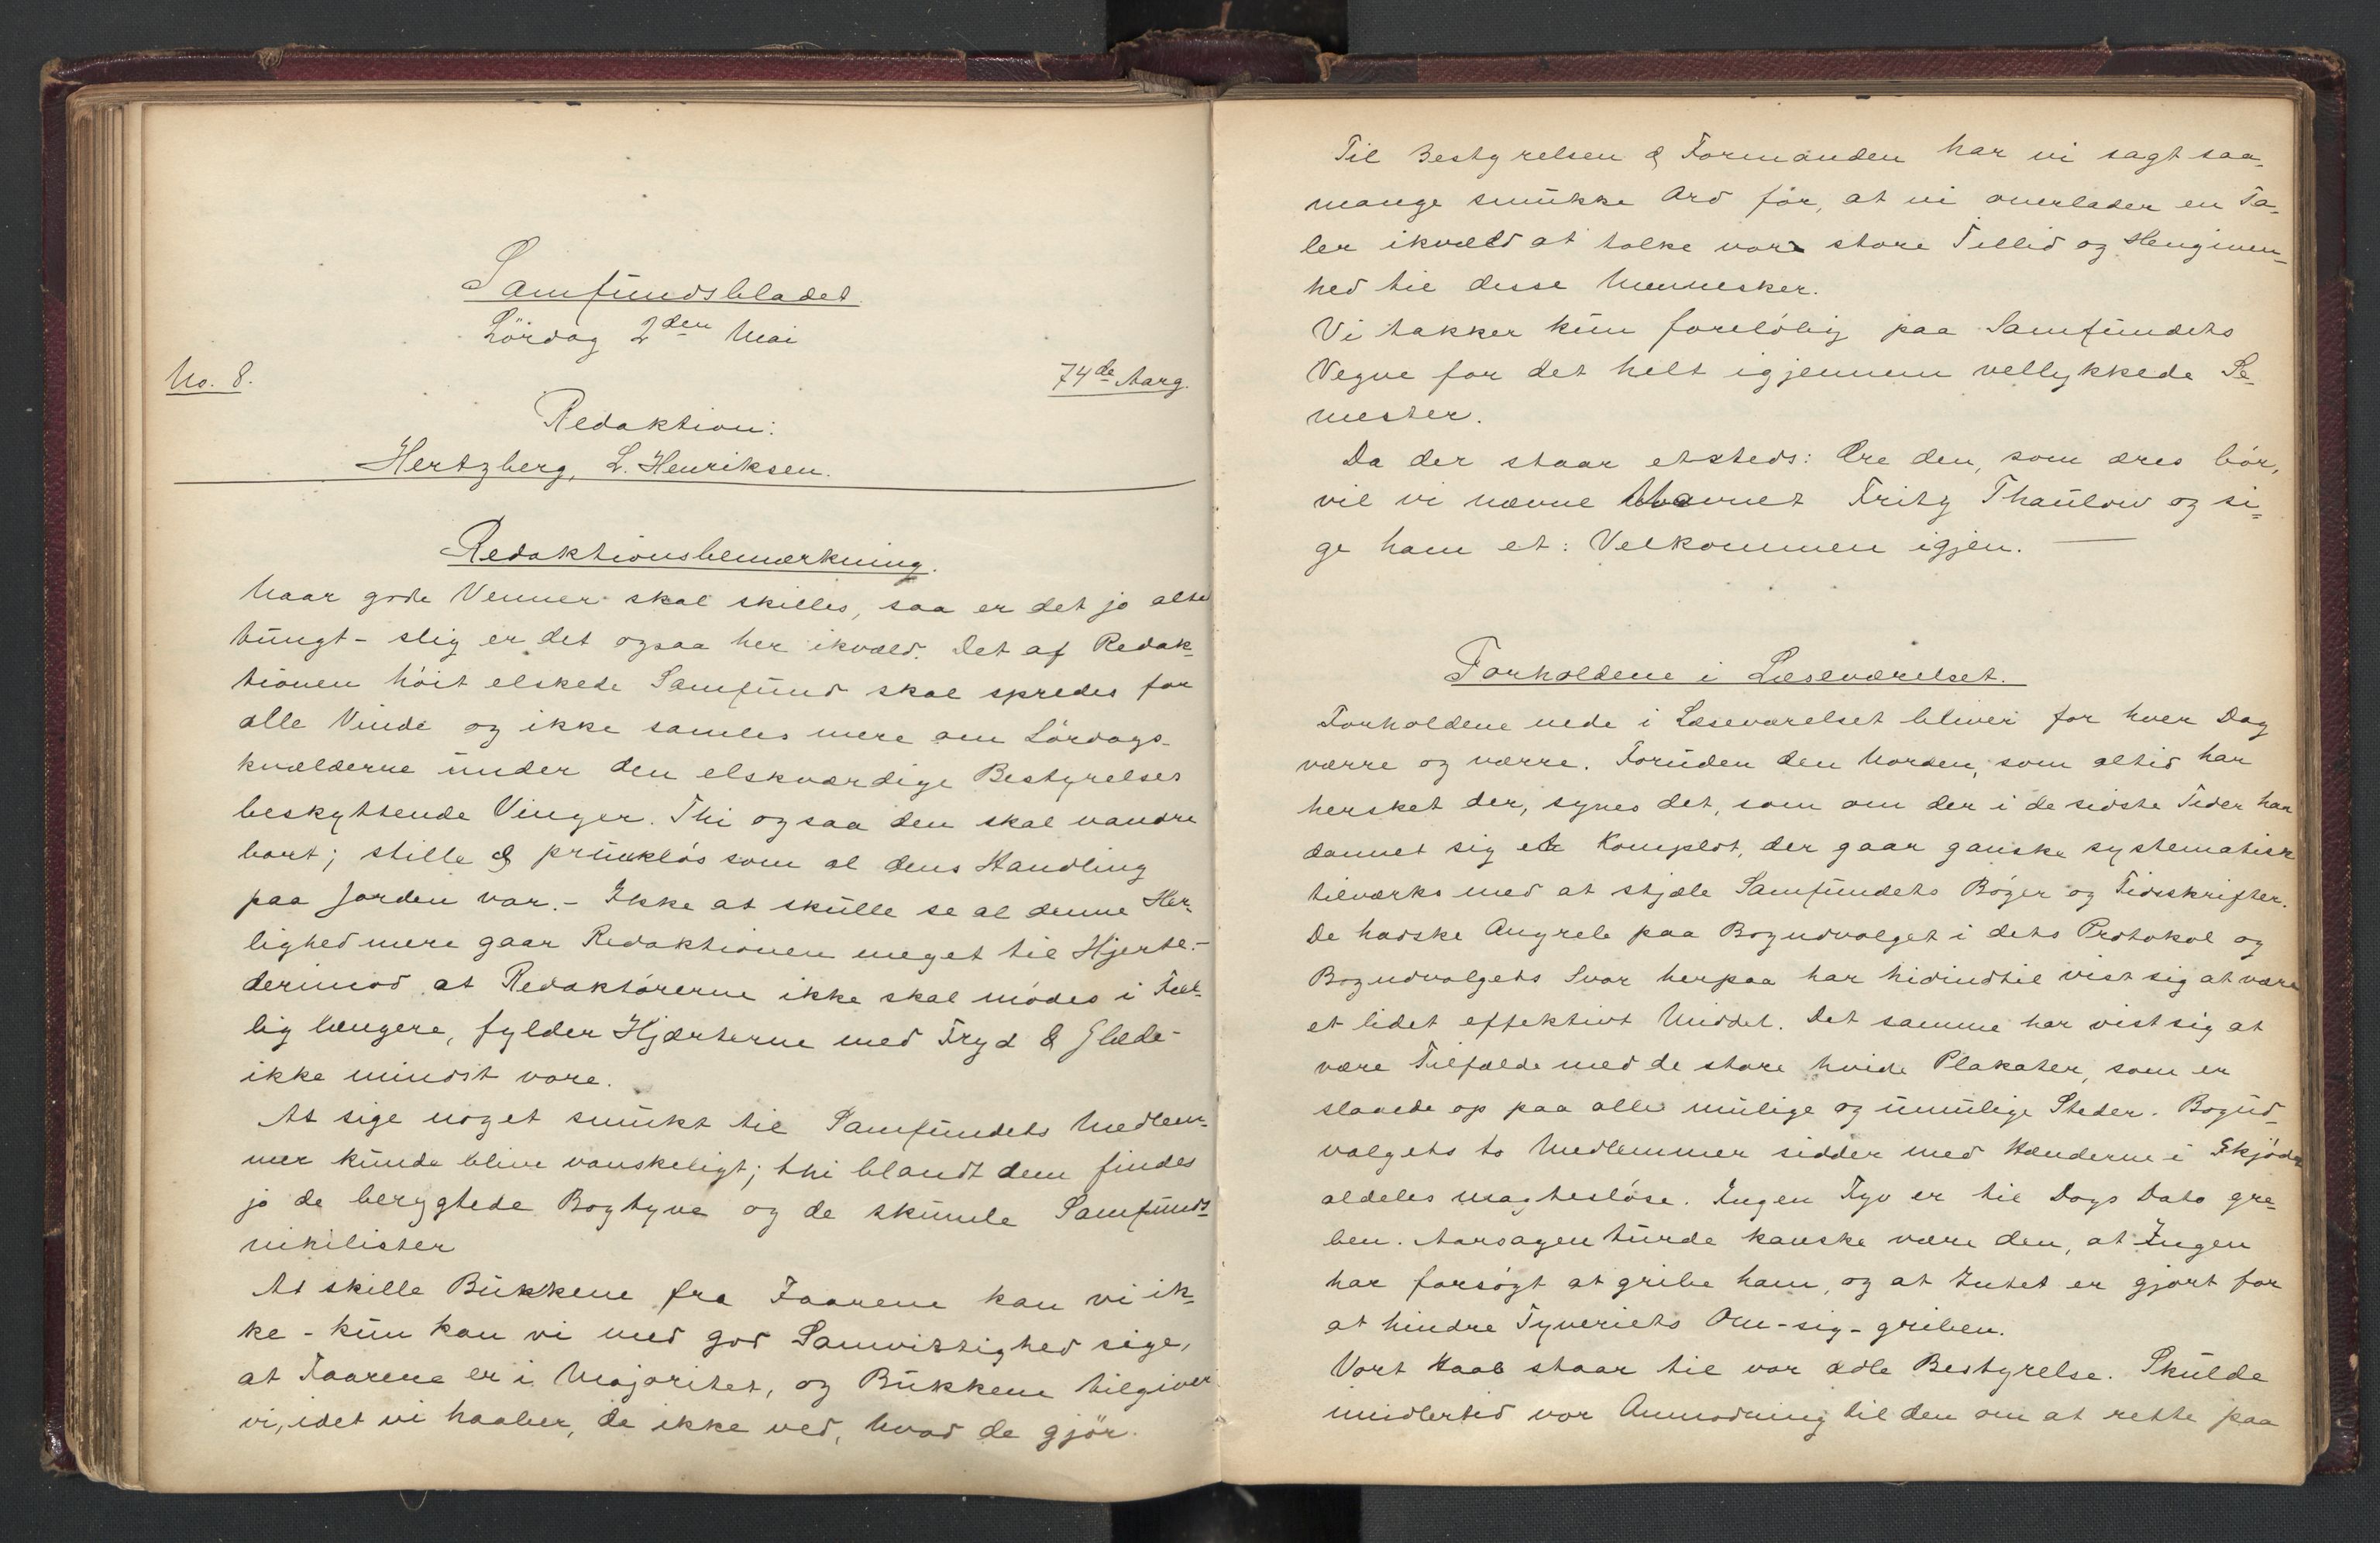 Samfundsbladet.
Lördag 2den Mai
No. 8.
74de Aarg.
Redaktion:
Hertzberg, L. Henriksen.
Redaktionsbemærkning.
Naar gode Venner skal skilles, saa er det jo altid
tungt - slig er det ogsaa her ikvæld. Det af Redak-
tionen höit elskede Samfund skal spredes for
alle Vinde og ikke samles mere om Lördags-
kvælderne under den elskværdige Bestyrelses
beskyttende Vinger. Thi ogsaa den skal vandre
bort; stille & prunklös som al dens Handling
paa Jorden var. - Ikke at skulle se al denne Her-
lighed mere gaar Redaktionen meget til Hjerte. -
derimod at Redaktörerne ikke skal mödes i
lig længere, fylder Hjærterne med Fryd & Glæde -
ikke mindst vore.
At sige noget smukt til Samfundets Medlem-
mer kunde blive vanskeligt; thi blandt dem findes
jo de berygtede Bogtyve og de skumle Samfunds-
nihilister
At skille Bukkene fra Faarene kan vi ik-
ke - kun kan vi med god Samvittighed sige,
at Faarene er i Majoritet, og Bukkene tilgiver
vi, idet vi haaber, de ikke ved, hvad de gjör.
Til Bestyrelsen & Formanden har vi sagt saa
mange smukke Ord för, at vi overlader en Ta-
ler ikvæld at tolke vor store Tillid og Hengiven-
hed til disse Mennesker.
Vi takker kun forelöbig paa Samfundets
Vegne for det helt igjennem vellykkede Se-
mester.
Da der staar etsteds: Ære den, som æres bör,
vil vi nævne Navnet Fritz Thaulow og si-
ge ham et: Velkommen igjen. —
Forholdene i Læseværelset.
Forholdene nede i Læseværelset bliver for hver Dag
værre og værre. Foruden den Uorden, som altid har
hersket der, synes det, som om der i de sidste Tider har
dannet sig et Komplot, der gaar ganske systematisk
tilværks med at stjæle Samfundets Böger og Tidsskrifter.
De hadske Angreb paa Bogudvalget i dets Protokol og
Bogudvalgets Svar herpaa har hidindtil vist sig at være
et lidet effektivt Middel. Det samme har vist sig at
være Tilfælde med de store hvide Plakater, som er
slaaede op paa alle mulige og umulige Steder. Bogud-
valgets to Medlemmer sidder med Hænderne i Skjödet
aldeles magteslöse. Ingen Tyv er til Dags Dato gre-
ben. Aarsagen turde kanske være den, at Ingen
har forsögt at gribe ham, og at Intet er gjort for
at hindre Tyveriets Om-sig-griben.
Vort Haab staar til vor ædle Bestyrelse. Skulde
imidlertid vor Anmodning til den om at rette paa